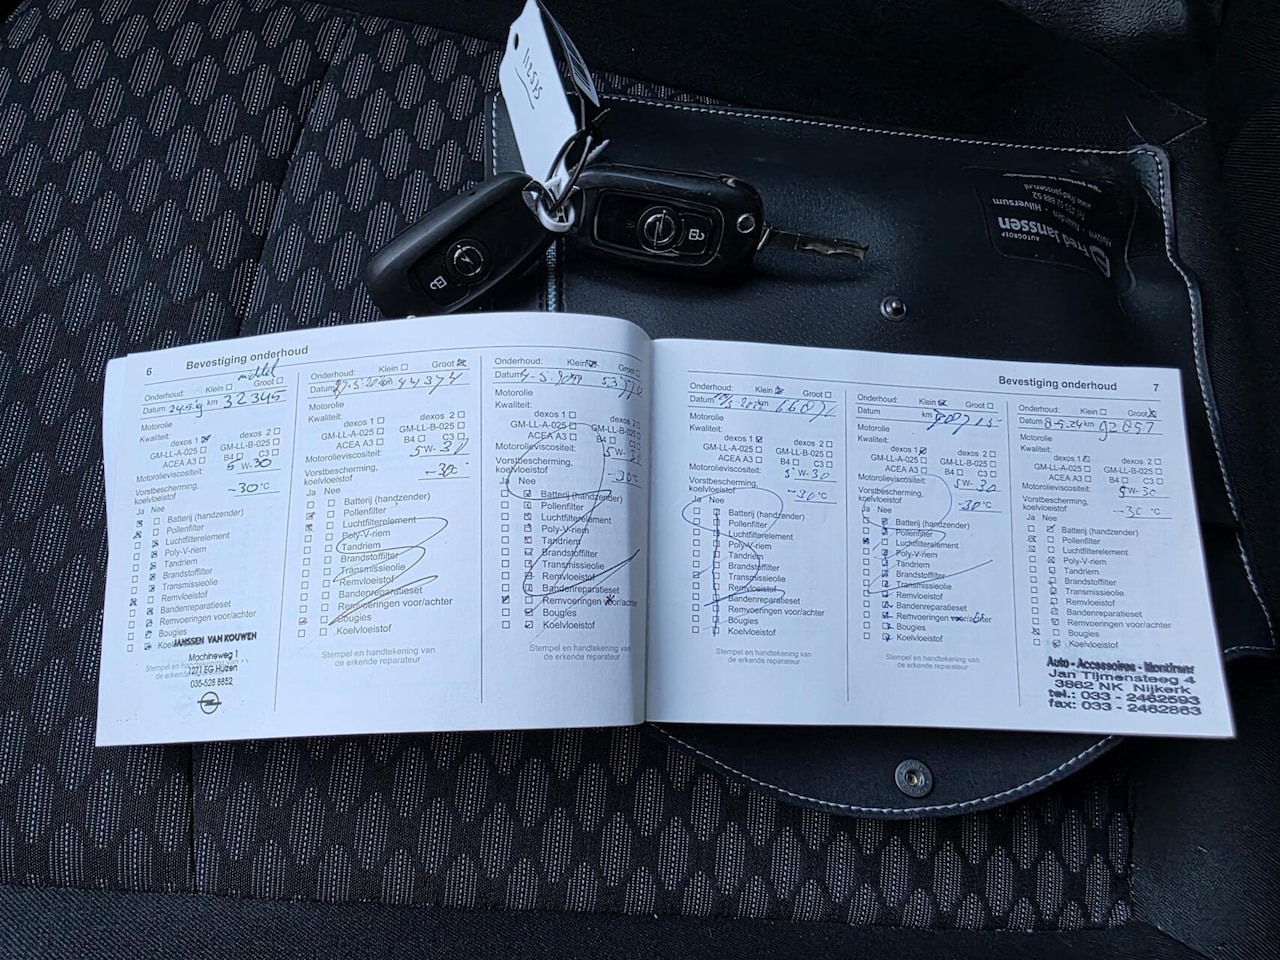 112575
fred Janssen
AUTOGROEP
Huizen - Naarden - Hilversum
www.fredjanssen.nl
6 Bevestiging onderhoud
Onderhoud: Klein Groot
middel
Datum 24.5.19 km 32345
Motorolie
Kwaliteit:
dexos 1 dexos 2
GM-LL-A-025 GM-LL-B-025
ACEA A3 B4 C3
Motorolieviscositeit: 5 W-30
Vorstbescherming,
koelvloeistof -30°C
Ja Nee
Batterij (handzender)
Pollenfilter
Luchtfilterelement
Poly-V-riem
Tandriem
Brandstoffilter
Transmissieolie
Remvloeistof
Bandenreparatieset
Remvoeringen voor/achter
Bougies
Koelvloeistof
Stempel en handtekening van
JANSSEN VAN KOUWEN
Machineweg 1
1271 EG Huizen
035-526 8852
Onderhoud: Klein Groot
Datum km 44374
Motorolie
Kwaliteit:
dexos 1 dexos 2
GM-LL-A-025 GM-LL-B-025
ACEA A3 B4 C3
Motorolieviscositeit: 5W-30
Vorstbescherming,
koelvloeistof -30c
Ja Nee
Batterij (handzender)
Pollenfilter
Luchtfilterelement
Poly-V-riem
Tandriem
Brandstoffilter
Transmissieolie
Remvloeistof
Bandenreparatieset
Remvoeringen voor/achter
Bougies
Koelvloeistof
Stempel en handtekening van
de erkende reparateur
Onderhoud: Klein Groot
Datum
Motorolie
Kwaliteit:
dexos 1 dexos 2
GM-LL-A-025 GM-LL-B-025
ACEA A3 B4 C3
Motorolieviscositeit: 5W-30
Vorstbescherming,
koelvloeistof -30°C
Ja Nee
Batterij (handzender)
Pollenfilter
Luchtfilterelement
Poly-V-riem
Tandriem
Brandstoffilter
Transmissieolie
Remvloeistof
Bandenreparatieset
Remvoeringen voor/achter
Bougies
Koelvloeistof
Stempel en handtekening van
de erkende reparateur
Bevestiging onderhoud 7
Onderhoud: Klein Groot
Datum km
Motorolie
Kwaliteit:
dexos 1 dexos 2
GM-LL-A-025 GM-LL-B-025
ACEA A3 B4 C3
Motorolieviscositeit: 5W-30
Vorstbescherming,
koelvloeistof -30°C
Ja Nee
Batterij (handzender)
Pollenfilter
Luchtfilterelement
Poly-V-riem
Tandriem
Brandstoffilter
Transmissieolie
Remvloeistof
Bandenreparatieset
Remvoeringen voor/achter
Bougies
Koelvloeistof
Stempel en handtekening van
de erkende reparateur
Onderhoud: Klein Groot
Datum km
Motorolie
Kwaliteit:
dexos 1 dexos 2
GM-LL-A-025 GM-LL-B-025
ACEA A3 B4 C3
Motorolieviscositeit: 5W-30
Vorstbescherming,
koelvloeistof -30°C
Ja Nee
Batterij (handzender)
Pollenfilter
Luchtfilterelement
Poly-V-riem
Tandriem
Brandstoffilter
Transmissieolie
Remvloeistof
Bandenreparatieset
Remvoeringen voor/achter
Bougies
Koelvloeistof
Stempel en handtekening van
de erkende reparateur
Onderhoud: Klein Groot
Datum 8-5.24 km 92857
Motorolie
Kwaliteit:
dexos 1 dexos 2
GM-LL-A-025 GM-LL-B-025
ACEA A3 B4 C3
Motorolieviscositeit: 5W-30
Vorstbescherming,
koelvloeistof -30°C
Ja Nee
Batterij (handzender)
Pollenfilter
Luchtfilterelement
Poly-V-riem
Tandriem
Brandstoffilter
Transmissieolie
Remvloeistof
Bandenreparatieset
Remvoeringen voor/achter
Bougies
Koelvloeistof
Auto - Accessoires - Montifrans
Jan Tijmensteeg 4
3862 NK Nijkerk
tel.: 033 - 2462593
fax: 033 - 2462863